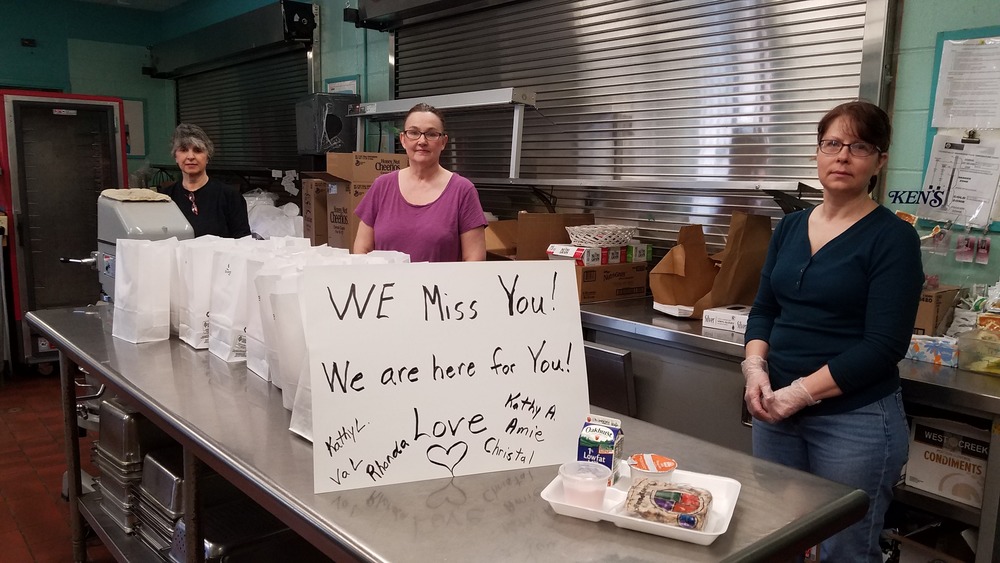 WE Miss You!
We are here for You!
Love
Kathy L.
Val
Rhonda
Kathy A.
Amie
Christal
Honey Nut
Cheerios
KEN'S
Oakhurst
1%
Lowfat
WEST CREEK
CONDIMENTS